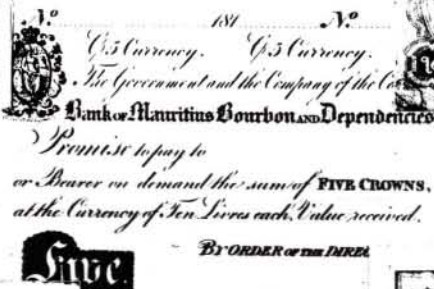 No 181 No
G5 Currency. G5 Currency.
The Government and the Company of the
Bank OF Mauritius Bourbon AND Dependencies
Promise to pay to
or Bearer on demand the sum of FIVE CROWNS,
at the Currency of Ten Livres each, Value received.
BY ORDER OF THE
Five.